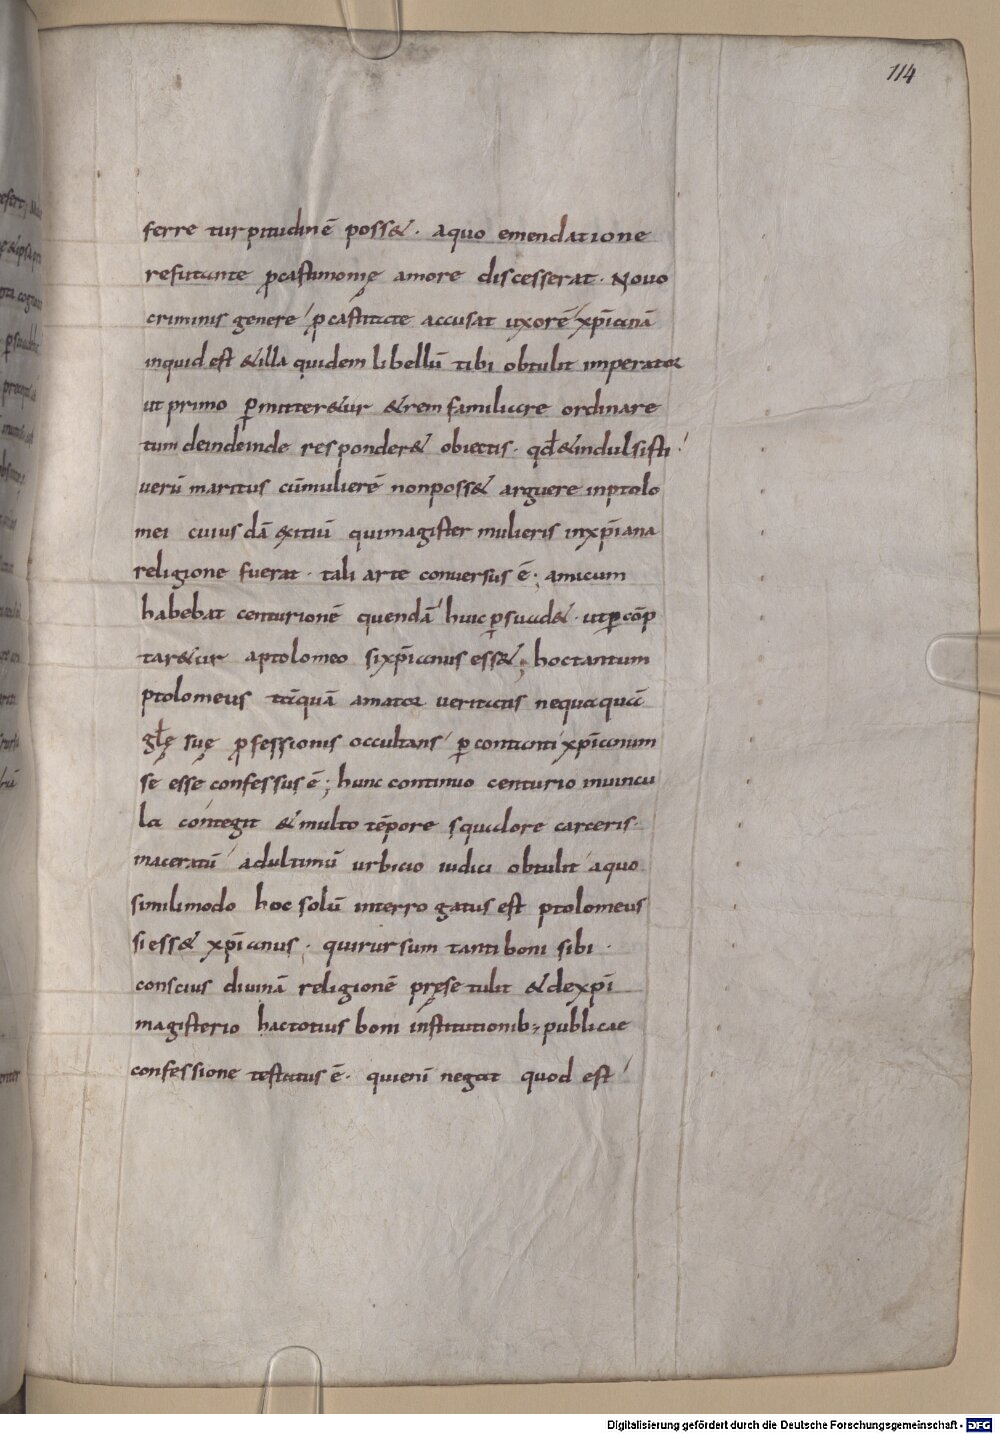 114
ferre turpitudinē poss& · aquo emendatione
refutante ꝓcastimonię amore discesserat · Nouo
criminis genere ꝓcastitate accusat uxorē xp̄ianā
inquid est &illa quidem libellū tibi obtulit imperator
ut primo ꝑmitter&ur &rem familiare ordinare
tum deindeinde responder& obiectis · qd̄ &indulsisti
uerū maritus cūmulierē nonposs& arguere inptolo
mei cuiusdā exitiū quimagister mulieris inxp̄iana
religione fuerat · tali arte conuersus ē ; amicum
habebat centurionē quendā huic ꝑsuad& · utꝑcōp
tar&ur aptolomeo sixp̄ianus ess& ; hoctantum
ptolomeus tāquā amator ueritatis nequaquā
gl̄ę suę ꝓfessionis occultans ꝑcontanti xp̄ianum
se esse confessus ē ; hunc continuo centurio inuincu
la contegit &multo tēpore squalore carceris
maceratū adultimū urbicio iudici obtulit aquo
similimodo hoc solū interrogatus est ptolomeus
siess& xp̄ianus · quirursum tanti boni sibi ·
conscius diuinā religionē pręse tulit &dexp̄i
magisterio hactotius boni institutionib; publicae
confessione testatus ē · quienī negat quod est
Digitalisierung gefördert durch die Deutsche Forschungsgemeinschaft - DFG